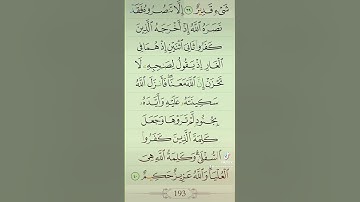 شَىْءٍ قَدِيرٌ ٣٩ إِلَّا تَنصُرُوهُ فَقَدْ
نَصَرَهُ ٱللَّهُ إِذْ أَخْرَجَهُ ٱلَّذِينَ
كَفَرُوا۟ ثَانِىَ ٱثْنَيْنِ إِذْ هُمَا فِى
ٱلْغَارِ إِذْ يَقُولُ لِصَٰحِبِهِۦ لَا
تَحْزَنْ إِنَّ ٱللَّهَ مَعَنَا ۖ فَأَنزَلَ ٱللَّهُ
سَكِينَتَهُۥ عَلَيْهِ وَأَيَّدَهُۥ
بِجُنُودٍ لَّمْ تَرَوْهَا وَجَعَلَ
كَلِمَةَ ٱلَّذِينَ كَفَرُوا۟
ٱلسُّفْلَىٰ ۗ وَكَلِمَةُ ٱللَّهِ هِىَ
ٱلْعُلْيَا ۗ وَٱللَّهُ عَزِيزٌ حَكِيمٌ ٤٠
193